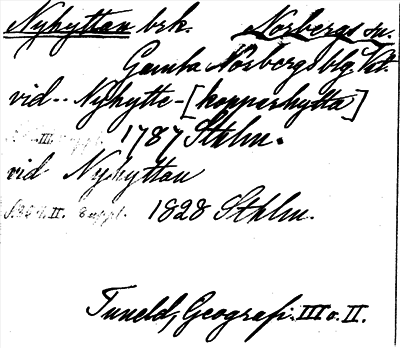 Nyhyttan brk. Norbergs sn.
Gamla Norbergs blg. Vtl.
vid -- Nyhytte-[kopparhytta]
III. suppl. 1787 Sthlm.
vid Nyhyttan
II. suppl. 1828 Sthlm.
Tuneld, Geografi. III o. II.